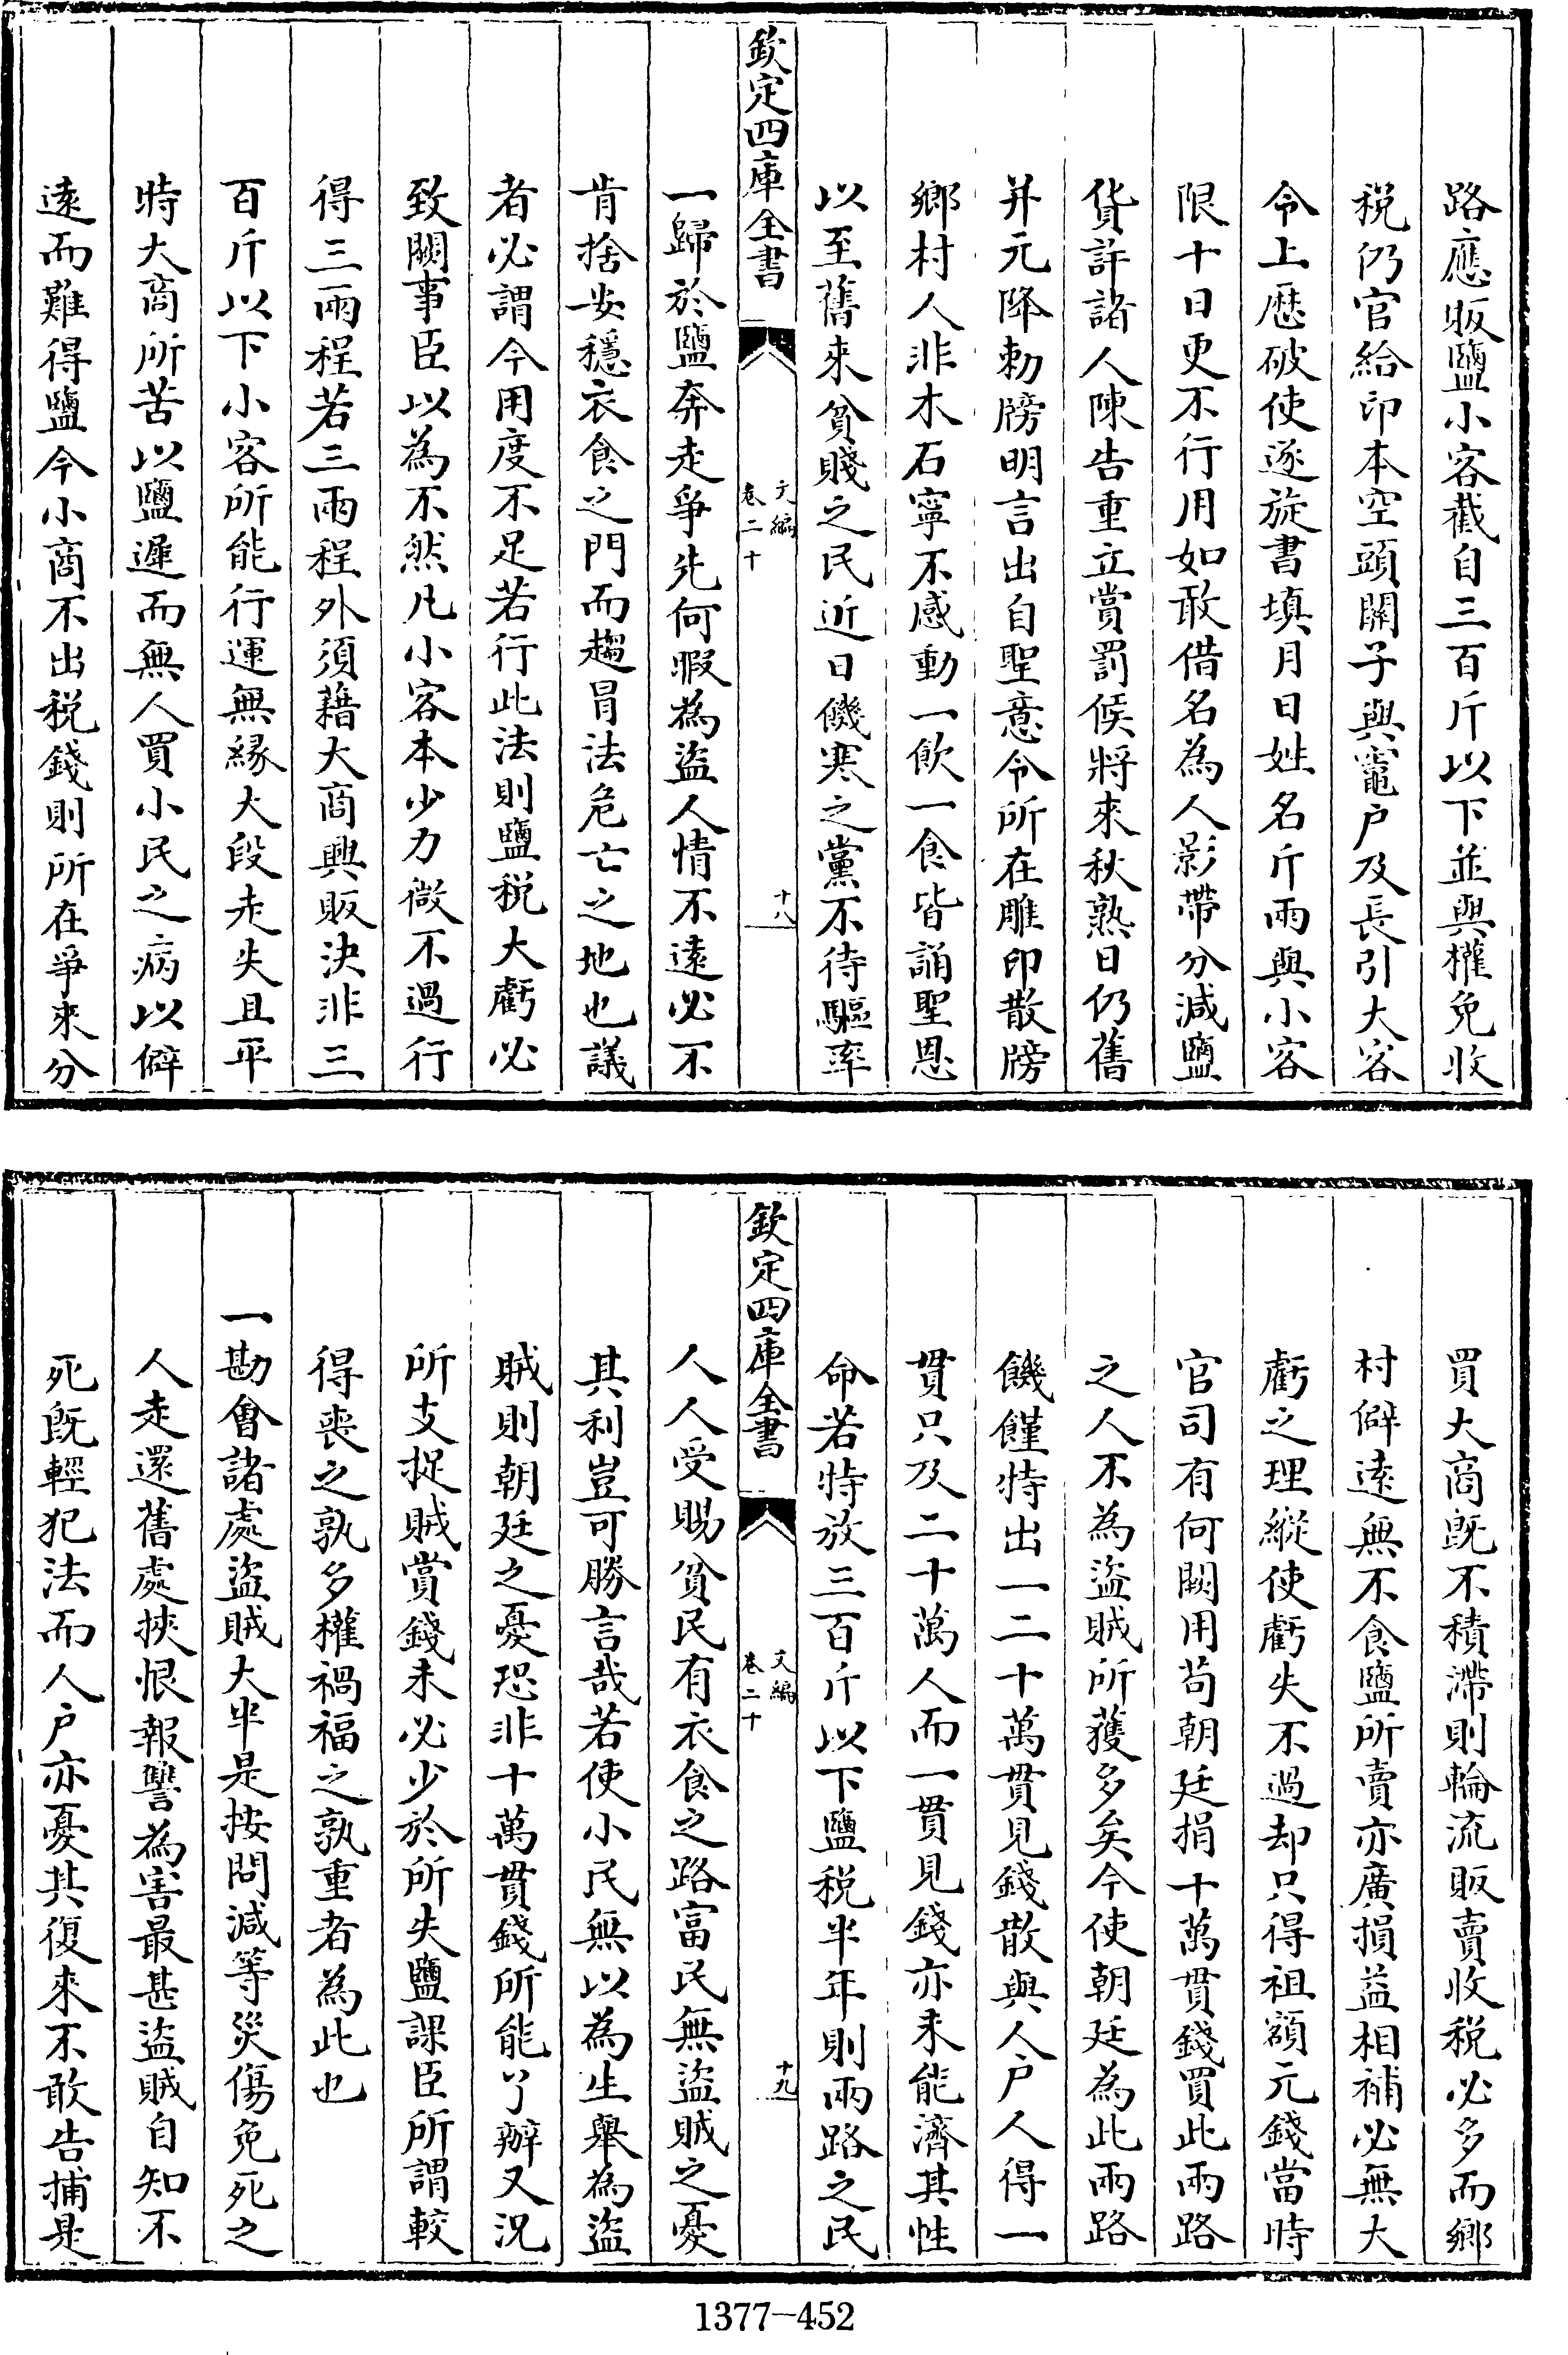 路應販鹽小客截自三百斤以下並與權免收
税仍官給印本空頭關子與竈户及長引大客
令上厯破使逐旋書填月日姓名斤兩與小客
限十日更不行用如敢借名為人影帶分減鹽
貨許諸人陳告重立賞罰候將來秋熟日仍舊
并元降勅牓明言出自聖意令所在雕印散牓
鄉村人非木石寧不感動一飲一食皆誦聖恩
以至舊來貧賤之民近日饑寒之黨不待驅率
欽定四庫全書
文編
卷二十
十八
一歸於鹽奔走爭先何暇為盗人情不遠必不
肯捨安穩衣食之門而趨冒法危亡之地也議
者必謂今用度不足若行此法則鹽税大虧必
致闕事臣以為不然凡小客本少力微不過行
得三兩程若三兩程外須藉大商興販決非三
百斤以下小客所能行運無縁大段走失且平
時大商所苦以鹽遲而無人買小民之病以僻
逺而難得鹽今小商不出税錢則所在爭來分
買大商既不積滯則輪流販賣收税必多而鄉
村僻逺無不食鹽所賣亦廣損益相補必無大
虧之理縱使虧失不過却只得祖額元錢當時
官司有何闕用苟朝廷捐十萬貫錢買此兩路
之人不為盗賊所獲多矣今使朝廷為此兩路
饑饉特出一二十萬貫見錢散與人户人得一
貫只及二十萬人而一貫見錢亦未能濟其性
命若特放三百斤以下鹽税半年則兩路之民
欽定四庫全書
文編
卷二十
十九
人人受賜貧民有衣食之路富民無盗賊之憂
其利豈可勝言哉若使小民無以為生舉為盗
賊則朝廷之憂恐非十萬貫錢所能了辦又況
所支捉賊賞錢未必少於所失鹽課臣所謂較
得喪之孰多權禍福之孰重者為此也
一勘會諸處盗賊大半是按問減等災傷免死之
人走還舊處挾恨報讐為害最甚盗賊自知不
死既輕犯法而人户亦憂其復來不敢告捕是
1377-452